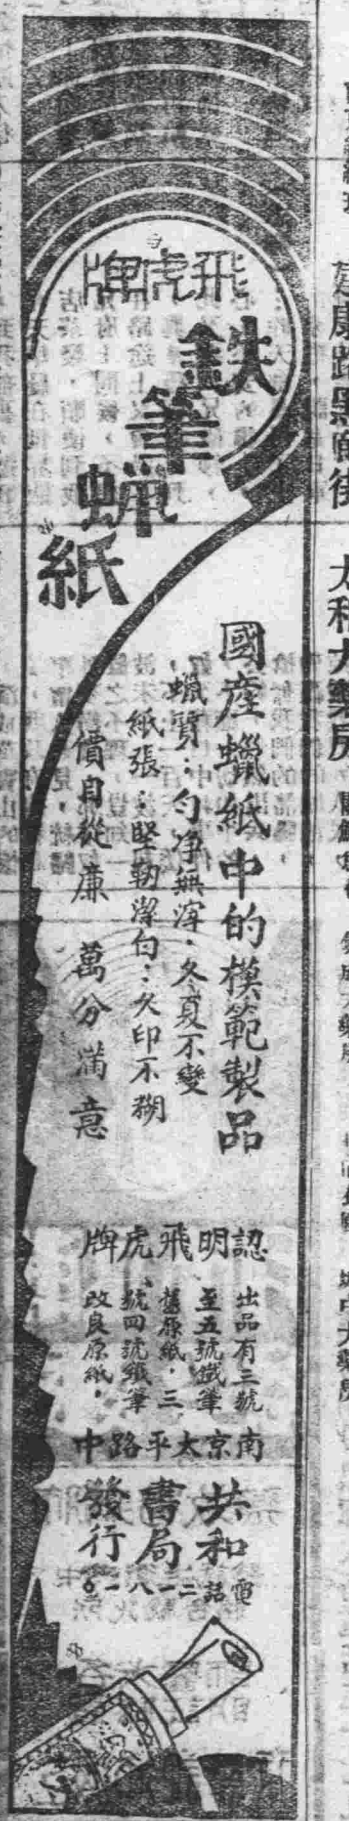 飛虎牌
鉄筆蝋紙
國産蠟紙中的模範製品
蠟質：勻净無滓，冬夏不變
紙張：堅韌潔白：久印不糊
價目從廉 萬分滿意
認明飛虎牌
出品有三號
至五號鐵筆
舊原紙，三
號四號鐵筆
改良原紙，
南京太平路中
共和書局發行
電話二一八一〇
建康路黑廊街
太和大藥房